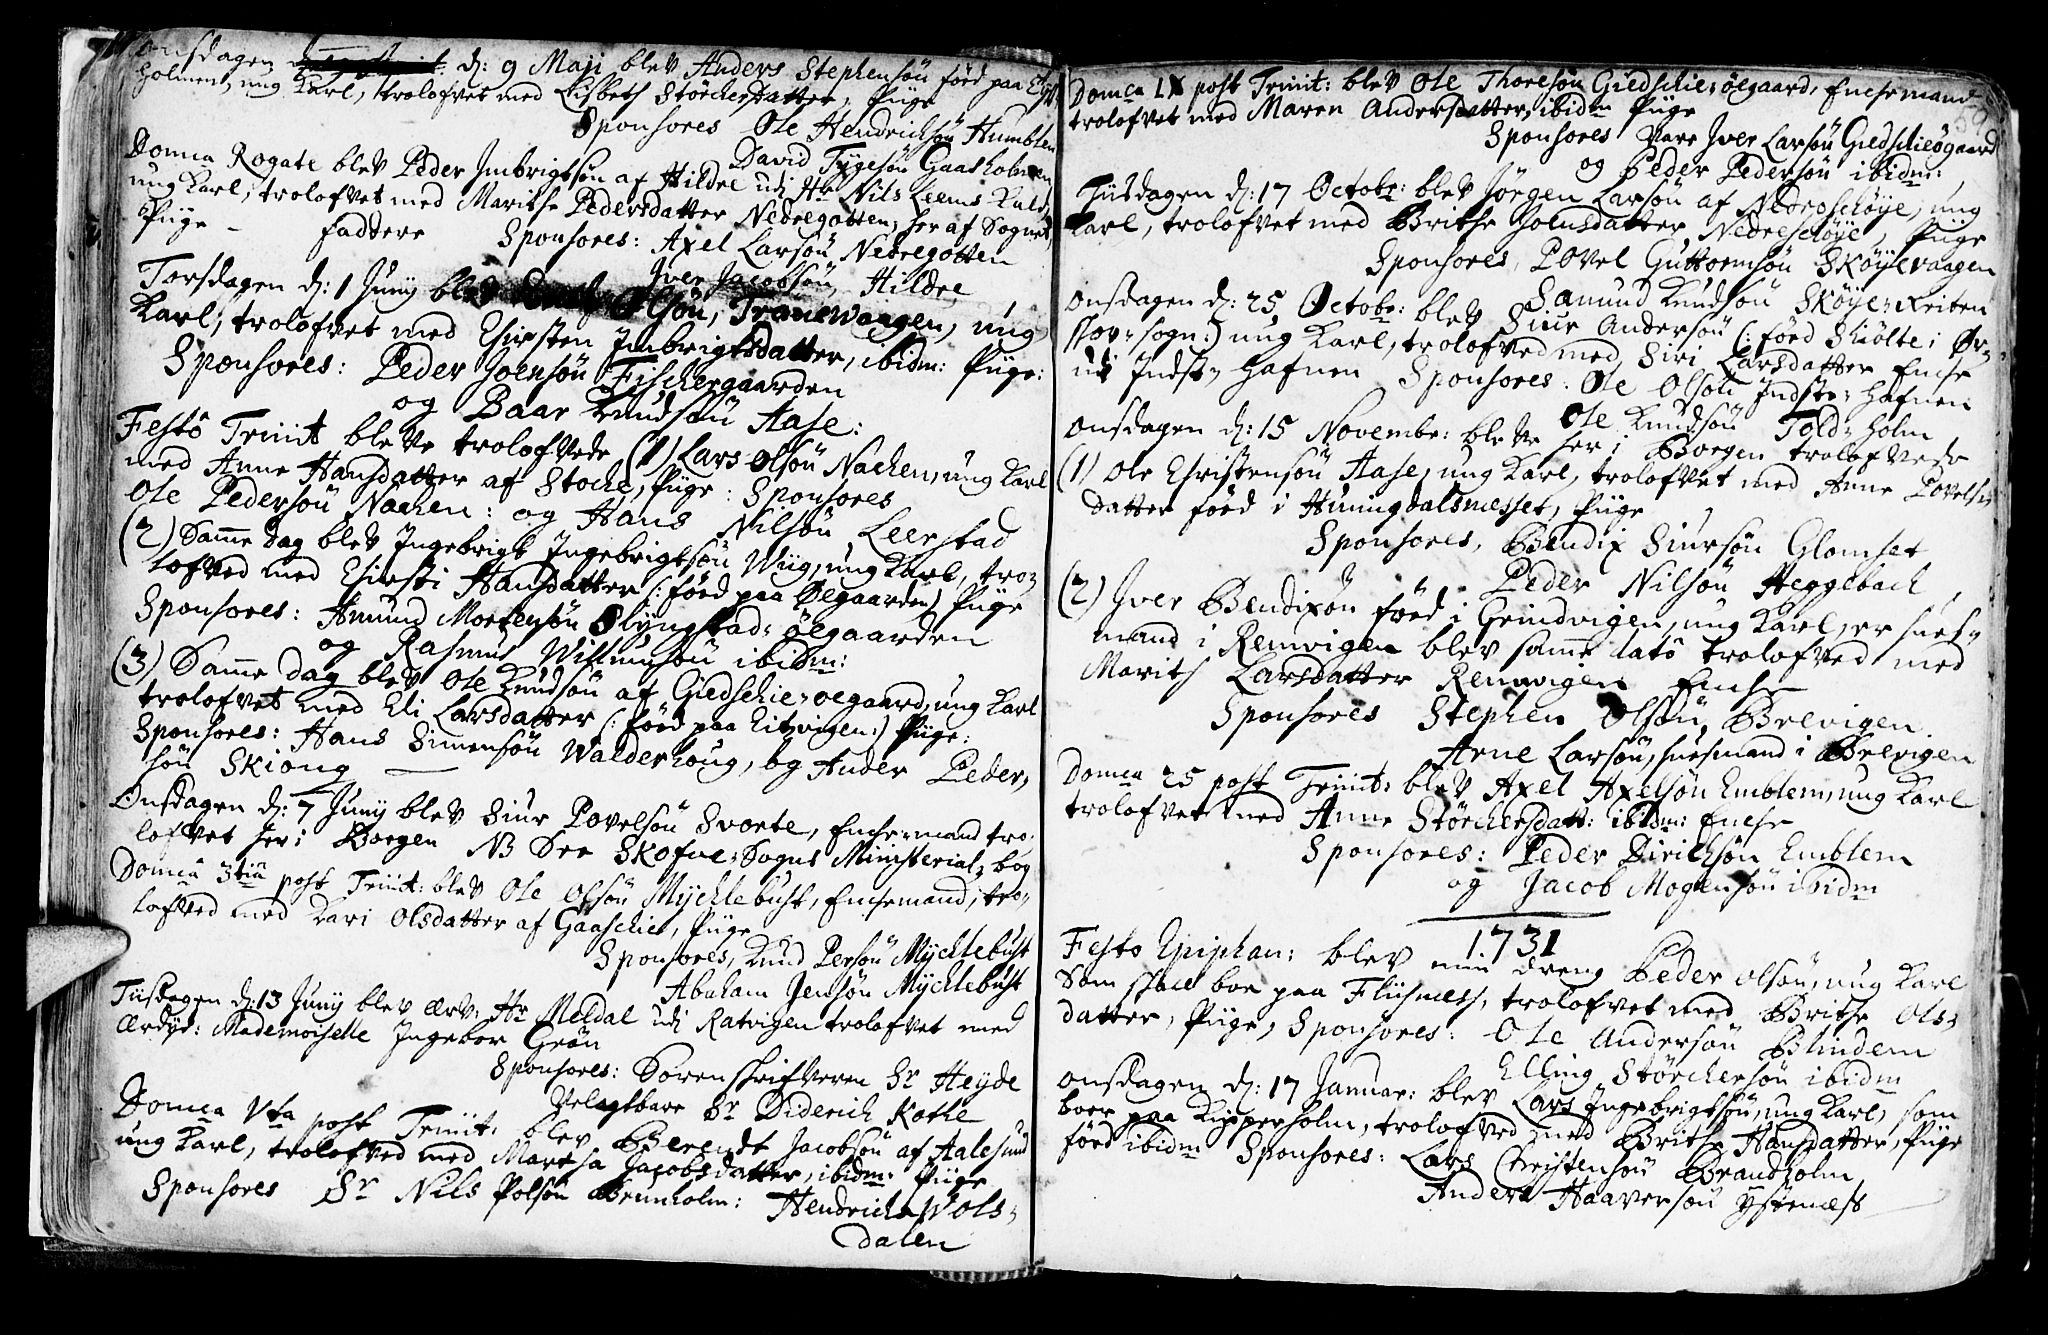 Onsdagen d: 9 Maji blev Anders Stephensøn førd paa
holmen, ung Karl, trolofvet med Lisbeth Störchersdatter, Piige
Sponsores Ole Hendrichsøn Humblen
David Tygesøn Gaasholmen
Domca Rogate blev Peder Imbrigtsøn af Hildre udi Hr Nils Leems Kald,
ung Karl, trolofvet med Marithe Pedersdatter Nedregotten, her af Sognet,
Piige - faddere Sponsores: Axel Larsøn Nedregotten
Iver Jacobsøn Hildre
Torsdagen d: 1 Junij blev Olsøn, Tranewaagen, ung
Karl, trolofvet med Chirsten Imbrigtsdatter, ibidm: Piige:
Sponsores: Peder Joensøn Fischergaarden
og Baar Knudsøn Aase:
Festo Trinit bleve trolofvede (1) Lars Olsøn Nachen, ung Karl
med Anne Hansdatter af Stoche, Piige: Sponsores
Ole Pedersøn Nachen: og Hans Nilsøn Leerstad
(2) Samme dag blev Ingebrigt Ingebrigtsøn Wiig, ung Karl, tro-
lofved med Chirsti Hansdatter (: förd paa Øegaarden) Piige
Sponsores: Amund Mortensøn Slyngstad-öegaarden
og Rasmus Willumsøn ibidm:
(3) Samme dag blev Ole Knudsøn af Giedschie-oegaard, ung Karl
trolofvet med Eli Larsdatter (: förd paa Eitzvigen:) Piige:
Sponsores: Hans Simensøn Walderhoug, og Ander Peder,
søn Skiong
Onsdagen d: 7 Junij blev Siur Povelsøn Svorte, Enche-mand tro-
lofvet her i Borgen NB See Skofve-Sogns Ministerial-bog
Domca 3tia post Trinit: blev Ole Olsøn Mychlebust, Enchemand, tro-
lofved med Kari Olsdatter af Gaaschie, Piige
Sponsores, Knud Persøn Mychlebust
Abraham Jensøn Mychlebust
Tiisdagen d: 13 Junij blev ærv: Hr Meldal udi Ratvigen trolofvet med
ærdyd: Mademoiselle Ingebor Grøn
Sponsores: Sorenskrifveren Sr Heyde
Velagtbare Sr Diderich Kathe
Domca Vta post Trinit: blev Berendt Jacobsøn af Aalesund
ung Karl, trolofved med Maretha Jacobsdatter, ibidm: Piige
Sponsores Sr Nils Polsøn Brunholm: Hendrich Wols-
dalen
Domca IX post Trinit: blev Ole Thoresøn Giedschie-öegaard, Enchemand
trolofvet med Maren Andersdatter, ibidm Piige
Sponsores Vare Iver Larsøn Giedschieögaard
og Peder Pedersøn ibidm:
Tiisdagen d: 17 Octobr: blev Jørgen Larsøn af Nedreschöye, ung
Karl, trolofvet med Brithe Johnsdatter Nedreschöye, Piige
Sponsores, Povel Guttormsøn Sköyevaagen
Samund Knudsøn Sköye-Reiten
Onsdagen d: 25 Octobr: blev Siur Andersøn (: förd Skiölte i Ør-
skov-sogn:) ung Karl, trolofved med Siri Larsdatter Enche
udi Indste Hafnen Sponsores: Ole Olsøn Indste-hafnen
Ole Knudsøn Told-holm
Onsdagen d: 15 Novembr: bleve her i Borgen trolofvede
(1) Ole Christensøn Aase, ung Karl, trolofvet med Anne Povels-
datter förd i Huningdalsnesset, Piige
Sponsores, Bendix Siursøn Glomset
Peder Nilsøn Heggebach
(2) Iver Bendixøn förd i Grindvigen, ung Karl, er hues-
mand i Remvigen blev samme dato trolofved med
Marith Larsdatter Remvigen Enche
Sponsores Stephen Olsøn Brevigen
Arne Larsøn, huesmand i Brevigen
Domca 25 post Trinit: blev Axel Axelsøn Emblem, ung Karl
trolofvet med Anne Störchersdatt: ibidm: Enche
Sponsores: Peder Dirichsøn Emblem
og Jacob Mogensøn ibidm
1731
Festo Epiphan: blev min dreng Peder Olsøn, ung Karl
Som skal boe paa Fliisness, trolofvet med Brithe Ols-
datter, Piige, Sponsores: Ole Andersøn Blindem
Elling Störchersøn ibidm
Onsdagen d: 17 Januar: blev Lars Ingebrigtsøn, ung Karl, som
boer paa Kipperholm, trolofved med Brithe Hansdatter, Piige
förd ibidm Sponsores: Lars Christensøn Brandholm
Anders Haaversøn Ystenæss